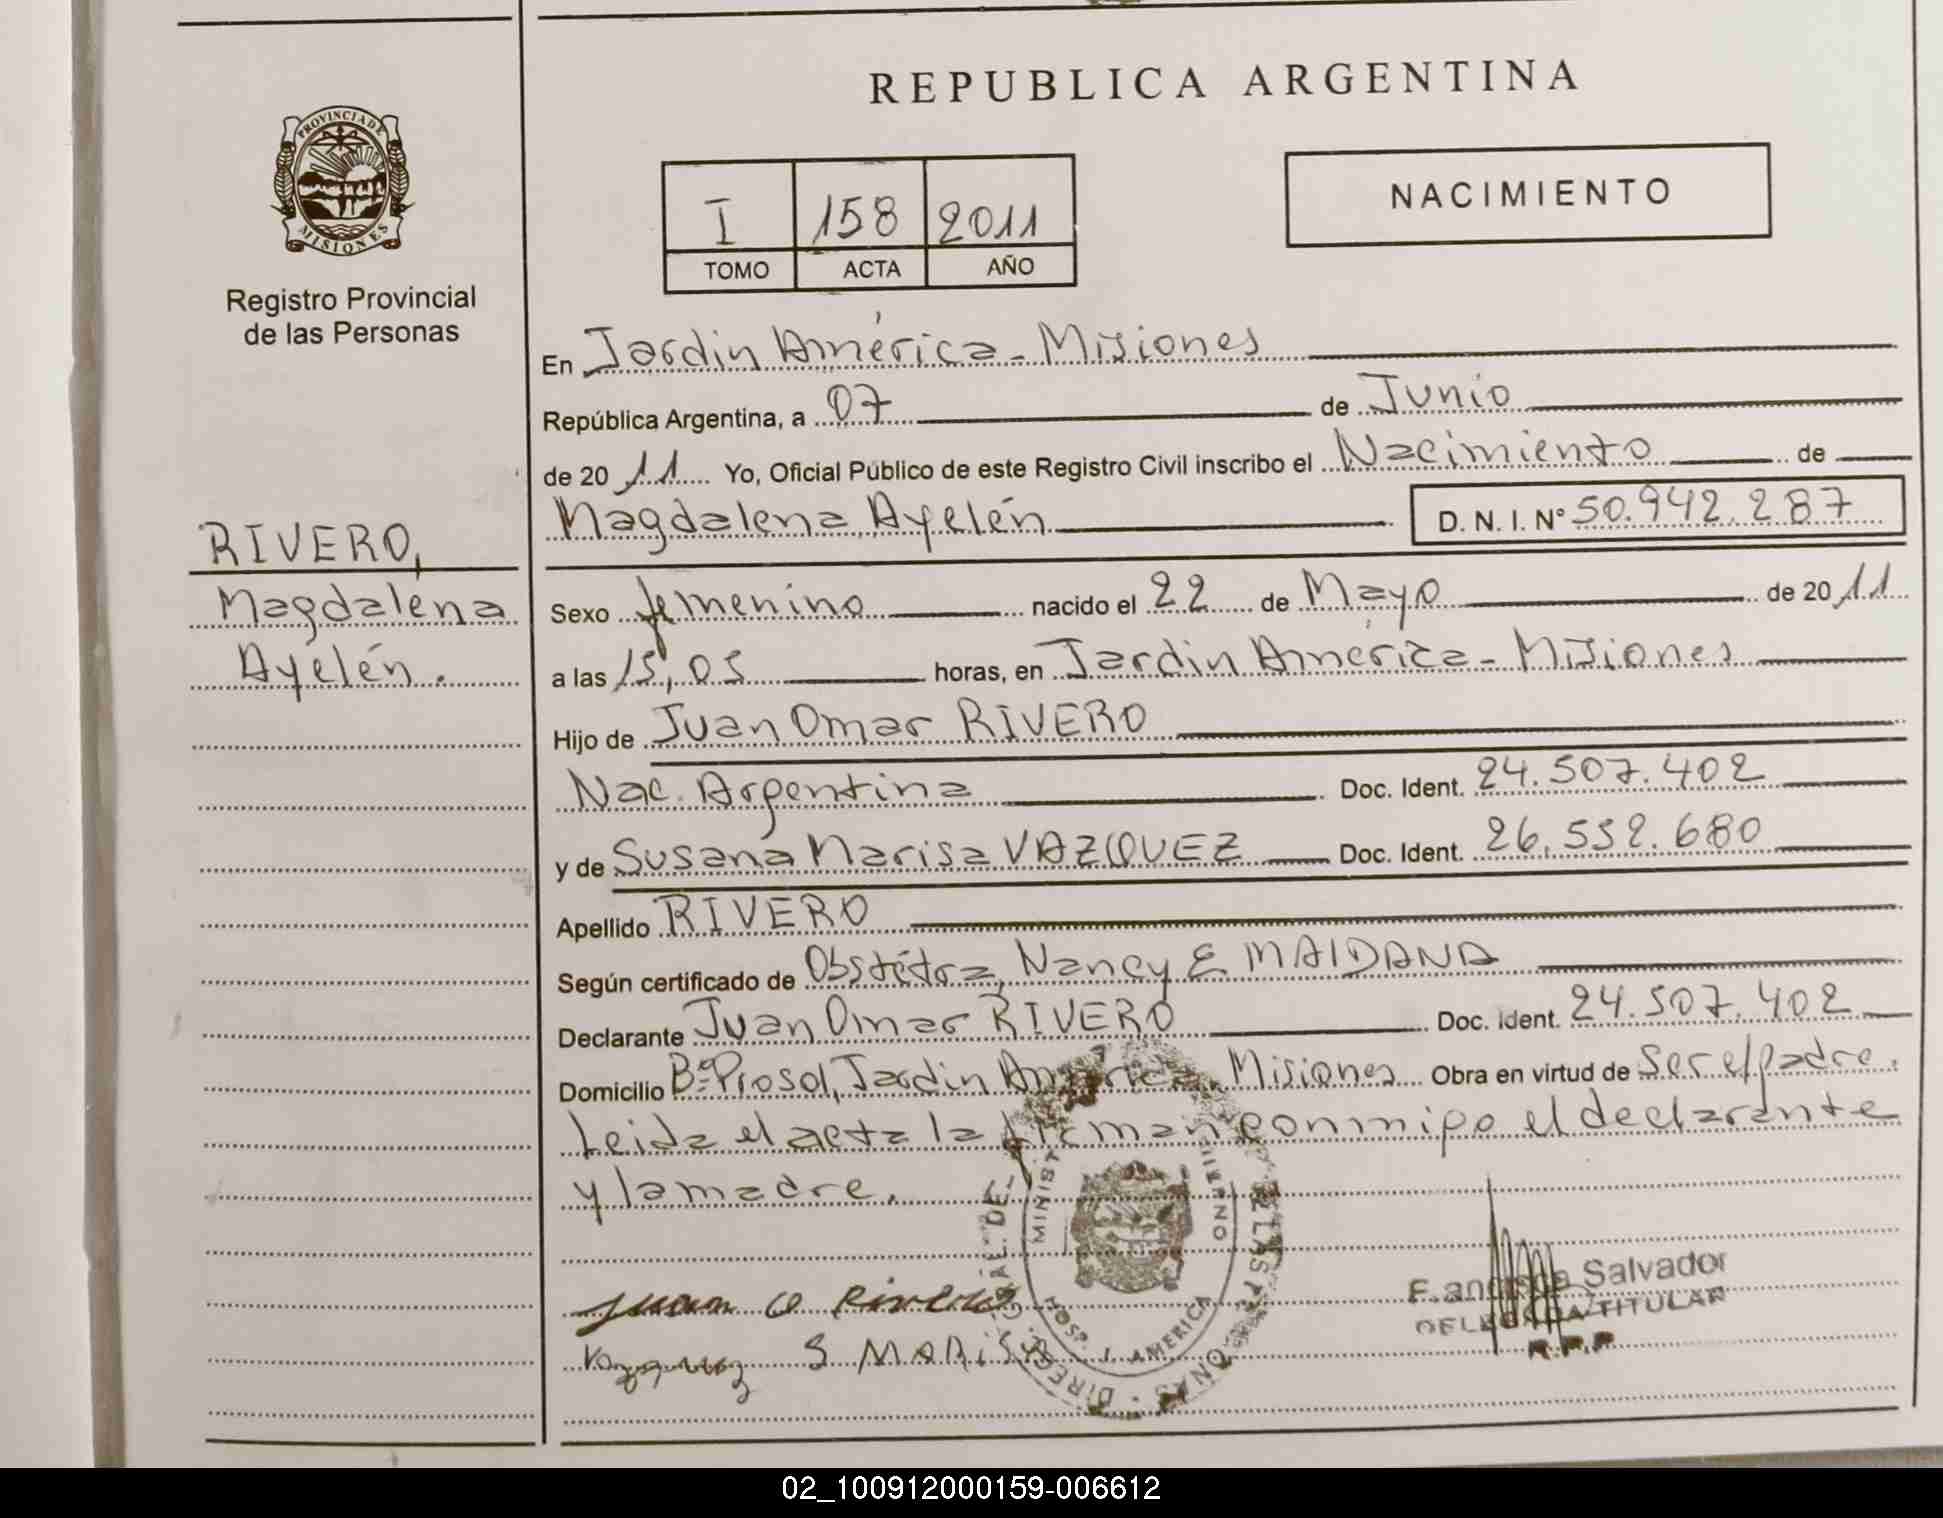 REPUBLICA ARGENTINA
PROVINCIA DE
MISIONES
Registro Provincial
de las Personas
I 158 2011
TOMO ACTA AÑO
NACIMIENTO
En Jardin América - Misiones
República Argentina, a 07 de Junio
de 20 11 Yo, Oficial Público de este Registro Civil inscribo el Nacimiento de
Magdalena Ayelén D. N. I. Nº 50.942.287
RIVERO,
Magdalena
Ayelén.
Sexo femenino nacido el 22 de Mayo de 20 11
a las 15,05 horas, en Jardin América - Misiones
Hijo de Juan Omar RIVERO
Nac. Argentina Doc. Ident. 24.507.402
y de Susana Marisa VAZQUEZ Doc. Ident. 26.552.680
Apellido RIVERO
Según certificado de Obstétra, Nancy E MAIDANA
Declarante Juan Omar RIVERO Doc. Ident. 24.507.402
Domicilio Bº Prosol, Jardin América, Misiones Obra en virtud de ser el padre.
Leida el acta la firman conmigo el declarante
y la madre.
Juan O Rivero
Vazquez S MARISA
HOSP. J. AMERICA
Salvador
DELEGADA TITULAR
R.P.P
02_100912000159-006612